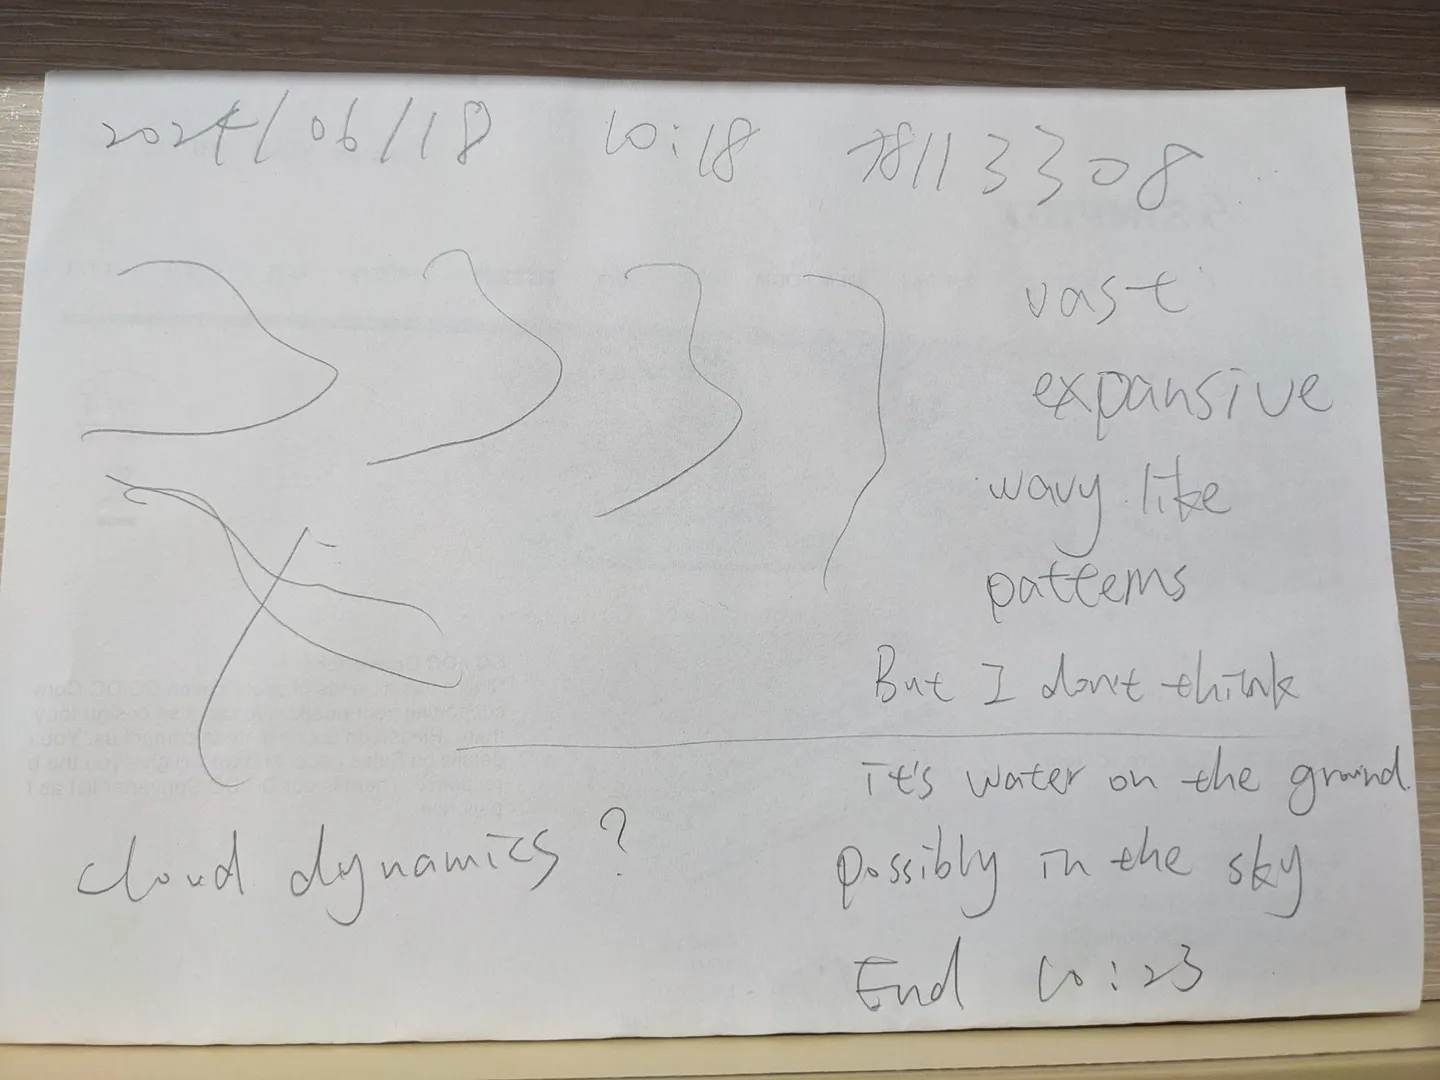 2024/06/18 10:18 78113308
vast
expansive
wavy like
patterns
But I don't think
it's water on the ground.
possibly in the sky
cloud dynamics ?
End 10:23